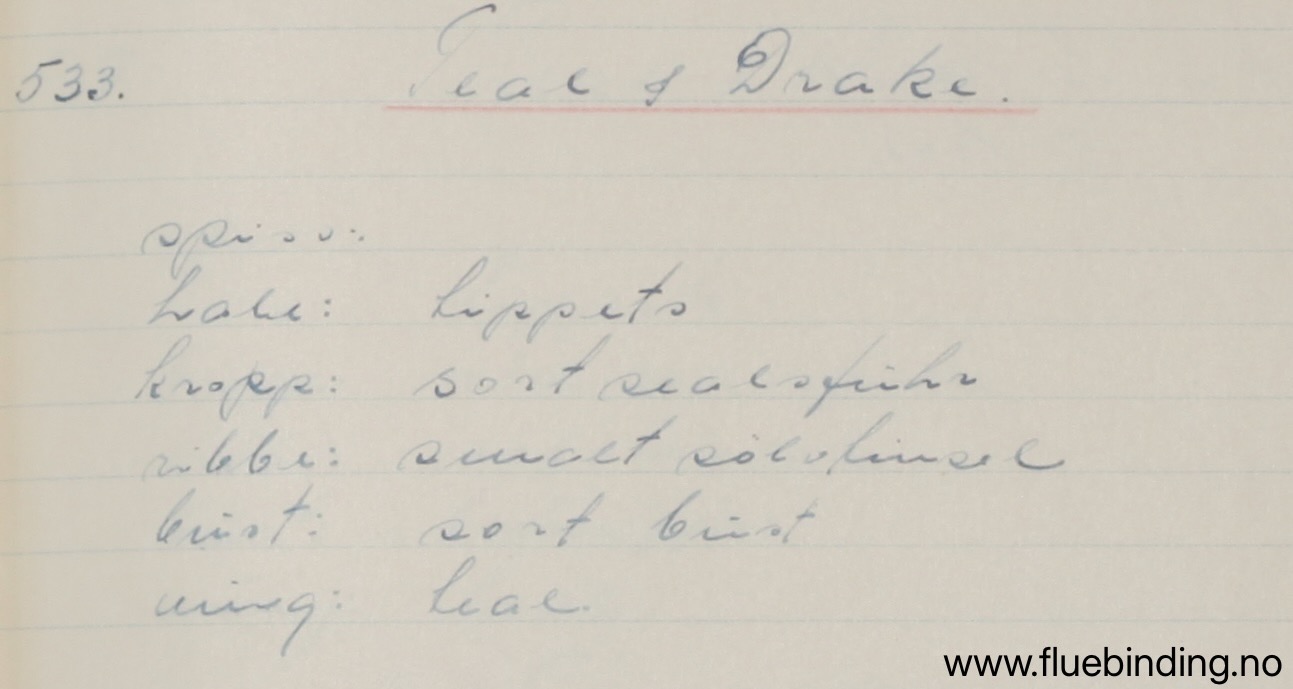 533. Teal & Drake.
spiss:
hale: tippets
kropp: sort sealsfuhr
ribbe: smalt sölvtinsel
bust: sort bust
ving: teal.
www.fluebinding.no